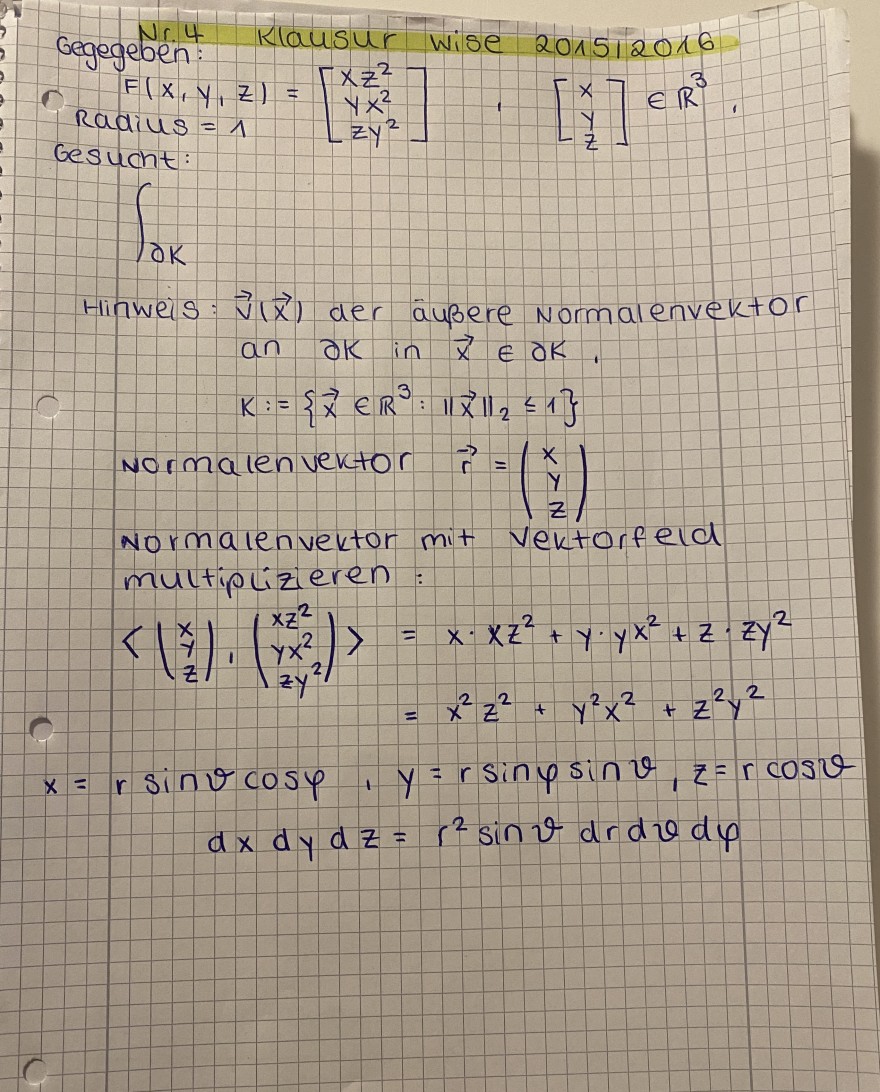 Nr. 4 Klausur WiSe 2015/2016
Gegegeben:
F(x, y, z) = [xz² yx² zy²] , [x y z] ∈ ℝ³ ,
Radius = 1
Gesucht:
∫_∂K
Hinweis: v⃗(x⃗) der äußere Normalenvektor
an ∂K in x⃗ ∈ ∂K .
K := {x⃗ ∈ ℝ³ : ||x⃗||₂ ≤ 1}
Normalenvektor r⃗ = (x y z)
Normalenvektor mit Vektorfeld
multiplizieren :
< (x y z) , (xz² yx² zy²) > = x · xz² + y · yx² + z · zy²
= x² z² + y²x² + z²y²
x = r sinϑ cosφ , y = r sinφ sinϑ , z = r cosϑ
dx dy dz = r² sinϑ dr dϑ dφ